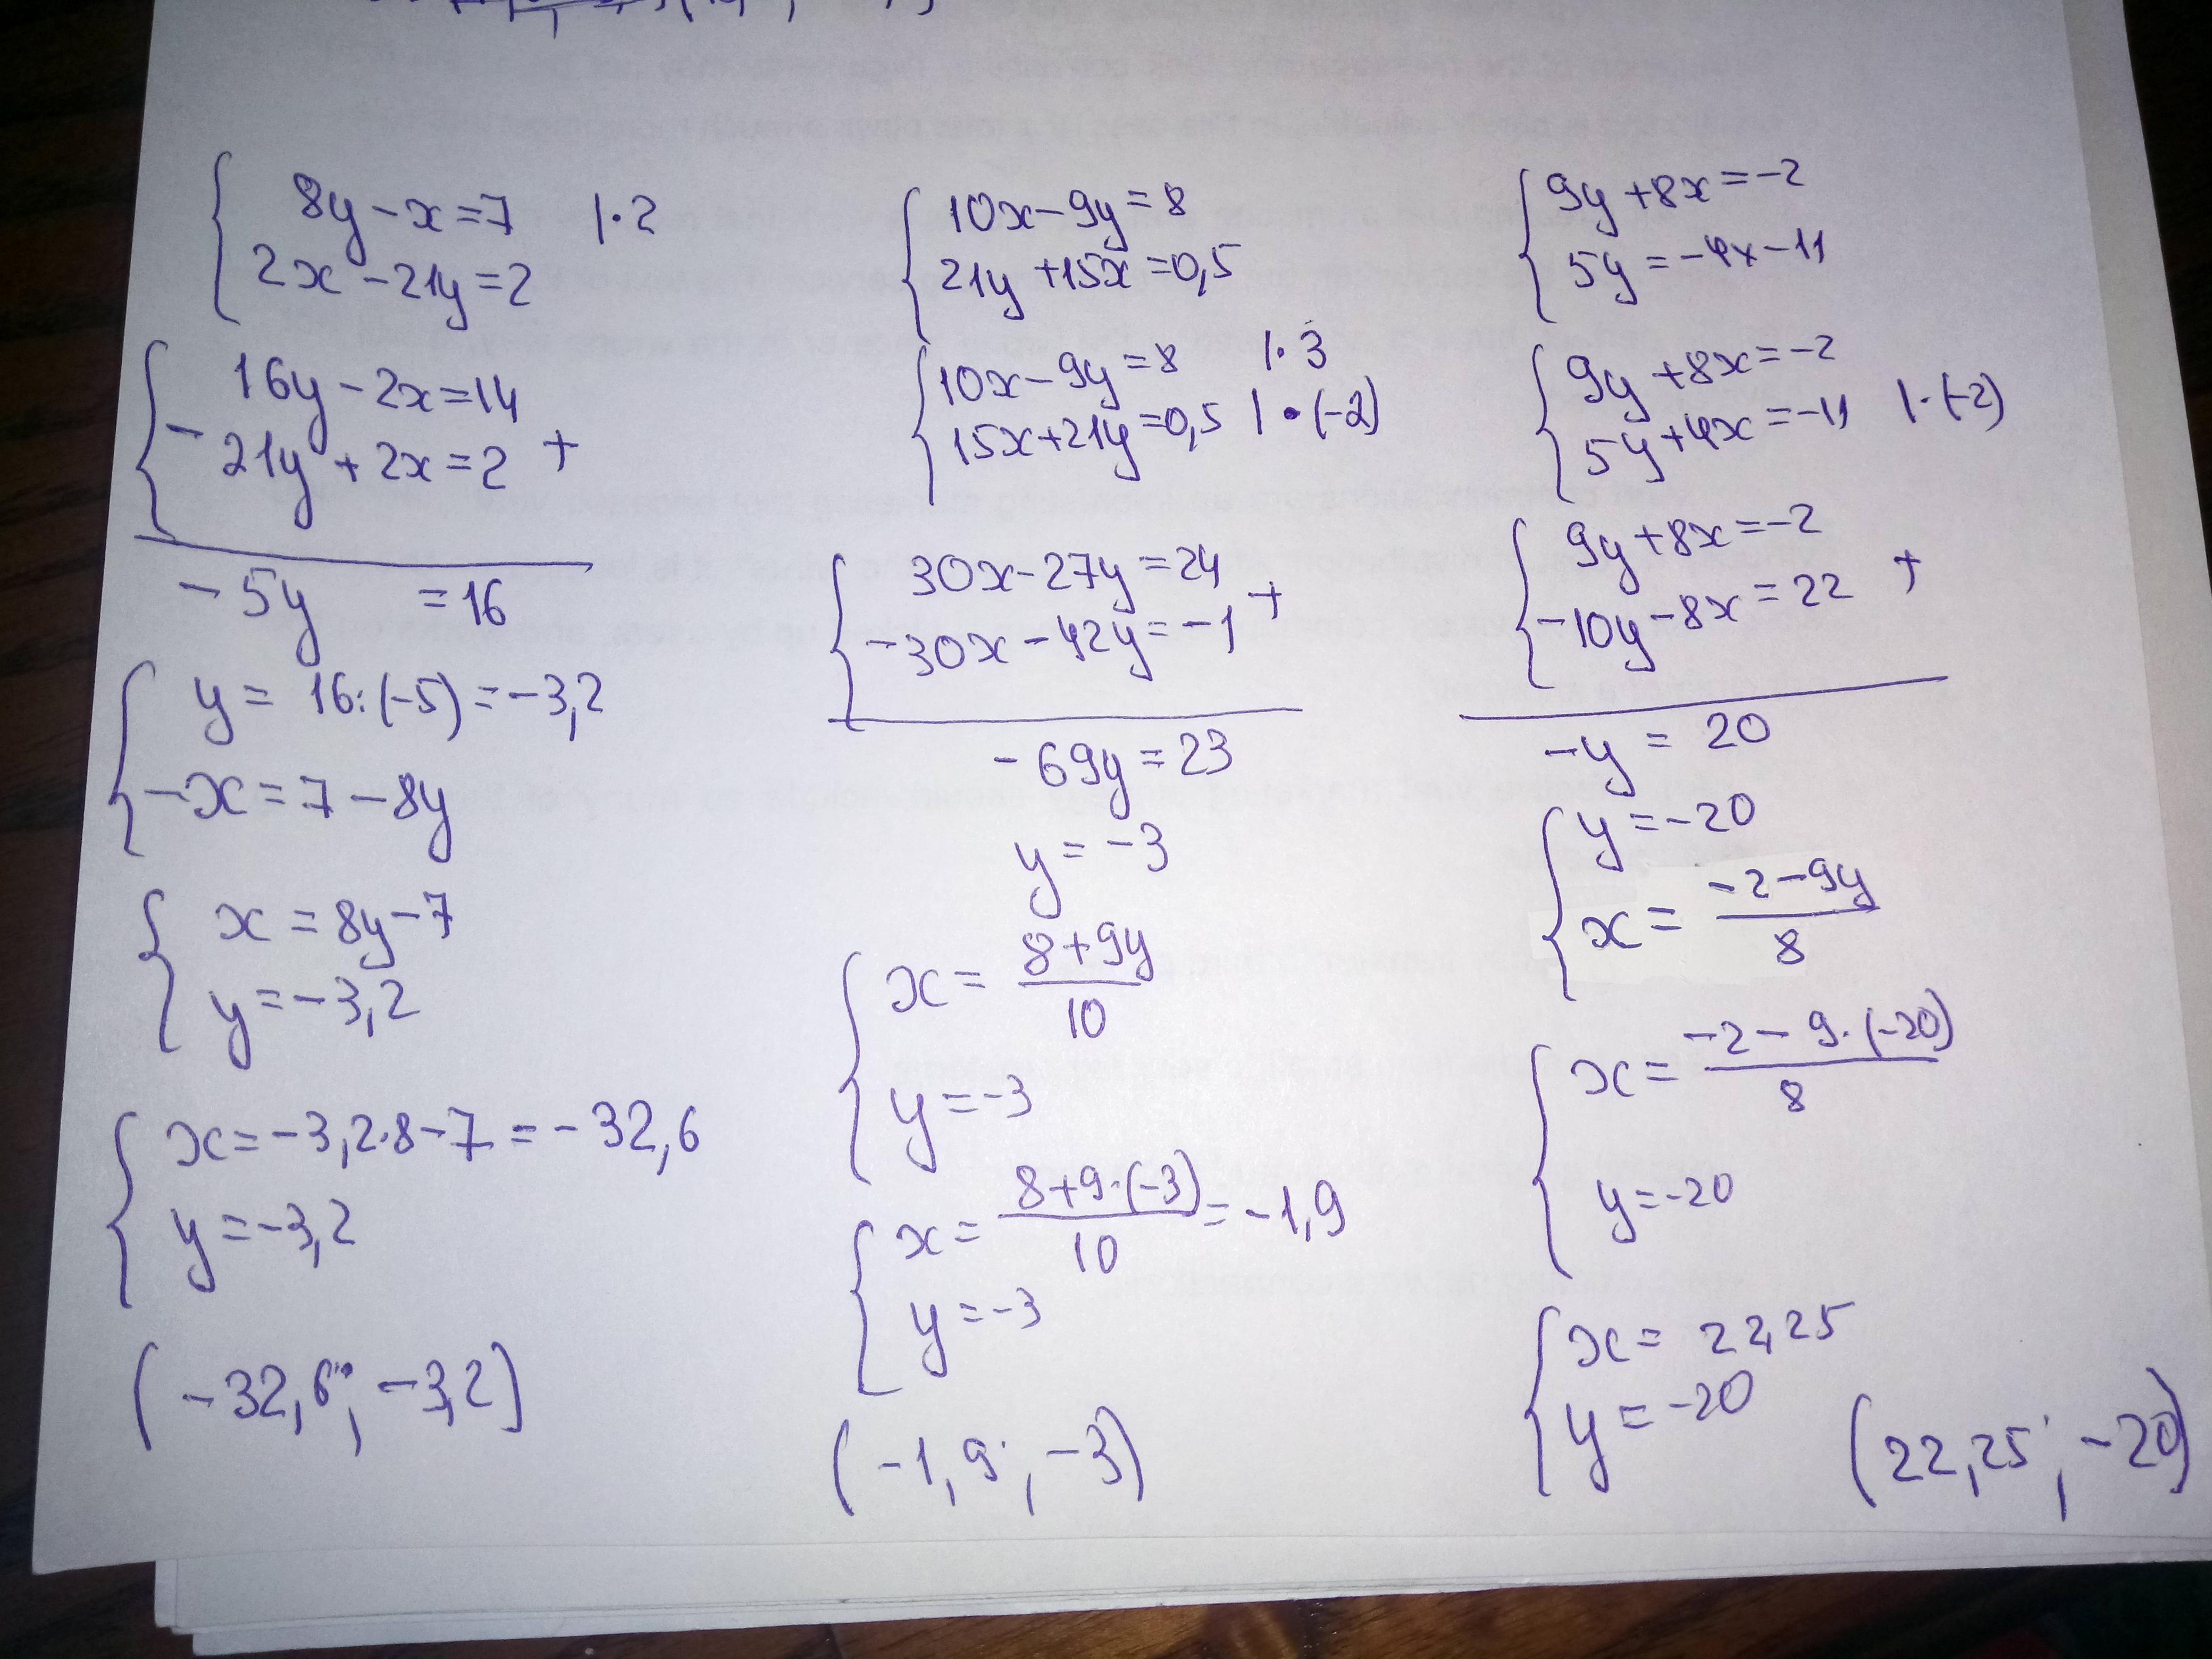 8y-x=7 |·2
2x-21y=2
16y-2x=14
-21y+2x=2 +
-5y =16
y= 16:(-5)=-3,2
-x=7-8y
x=8y-7
y=-3,2
x=-3,2·8-7=-32,6
y=-3,2
(-32,6;-3,2)
10x-9y=8
21y+15x=0,5
10x-9y=8 |·3
15x+21y=0,5 |·(-2)
30x-27y=24
-30x-42y=-1 +
-69y=23
y=-3
x= 8+9y
10
y=-3
x= 8+9·(-3) =-1,9
10
y=-3
(-1,9;-3)
9y+8x=-2
5y=-4x-11
9y+8x=-2
5y+4x=-11 |·(-2)
9y+8x=-2
-10y-8x=22 +
-y=20
y=-20
x= -2-9y
8
x= -2-9·(-20)
8
y=-20
x=22,25
y=-20
(22,25;-20)